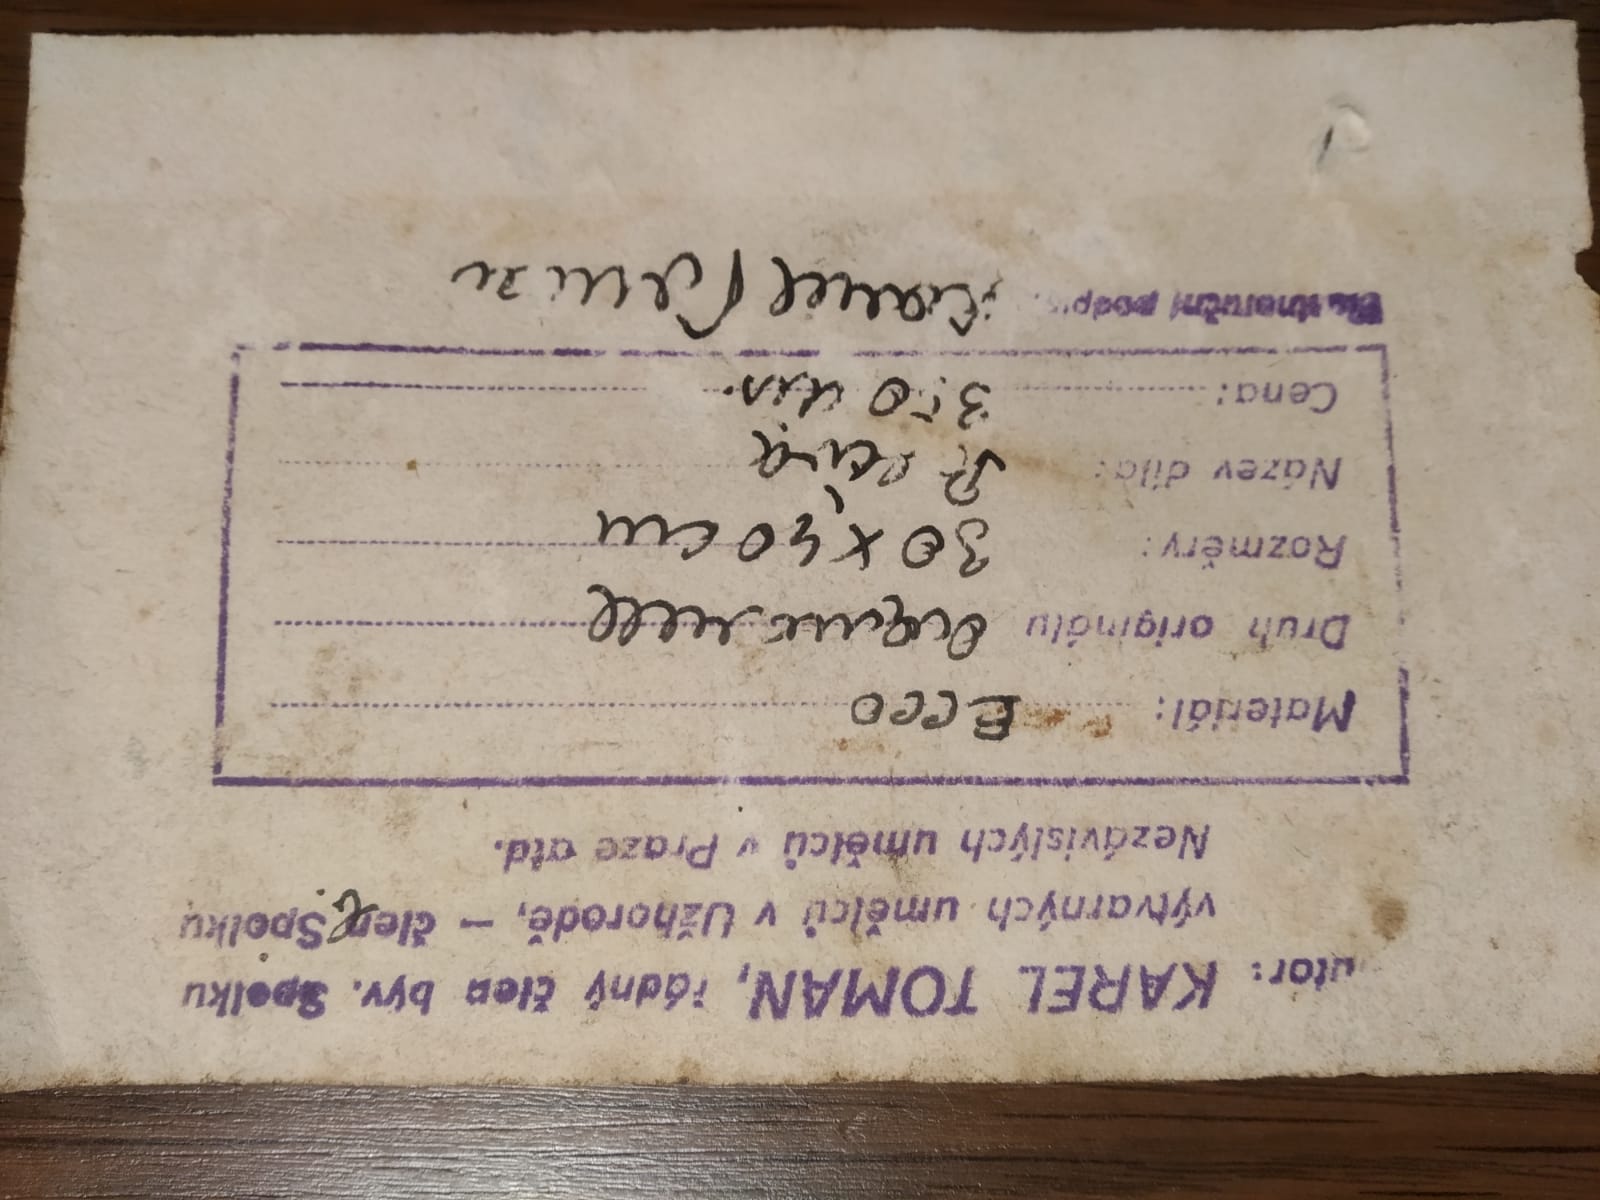 utor: KAREL TOMAN, řádný člen býv. Spolku
výtvarných umělců v Užhorodě, — člen Spolku
Nezávislých umělců v Praze atd.
Materiál:
Druh originálu
Rozměry: 30 x 40 cm
Název díla:
Cena: 350
podpis: Karel Toman